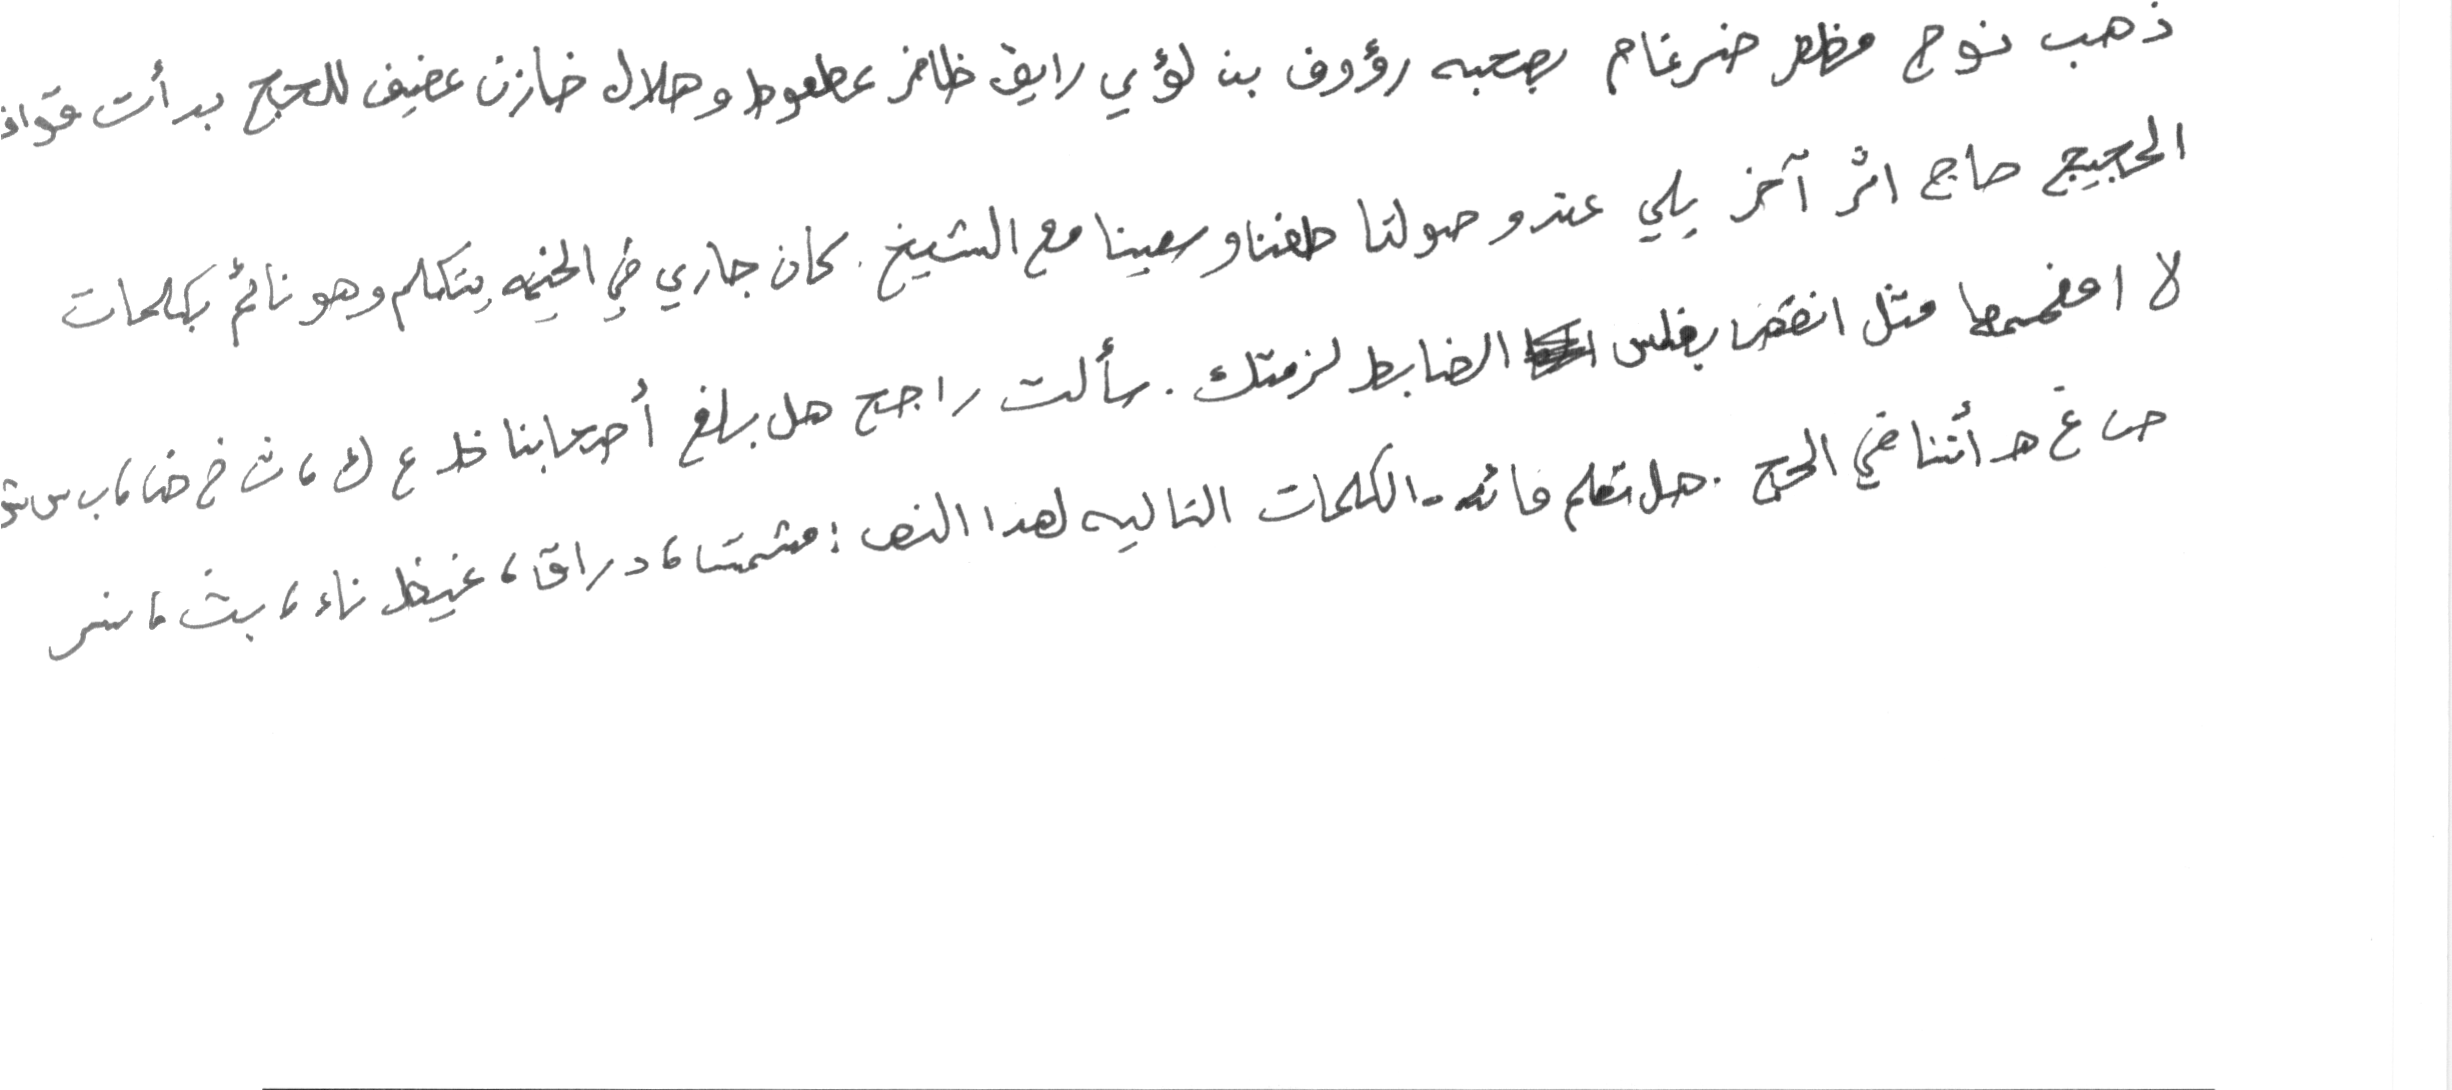 ذهب نوح مظهر ضرغام بصحبه رؤوف بن لؤي رايق ظافر عطعوط وهلال خازن عفيف للحج بدأت قوافل
الحجيج حاج اثر آخر يلي عند وصولنا طفنا وسعينا مع الشيخ . كان جاري في الخيمه يتكلم وهو نائم بكلمات
لا افهمها مثل انقض يغلس الضابط لزمتك . سألت راجح هل بلغ أصحابنا ظ ع ك ، ث خ ض ، ب س ش
ص غ ه أثنا في الحج . هل تعلم فائده الكلمات التاليه لهذا النص : مشمتا ، دراق ، غيظ ناء ، بث ، نسر